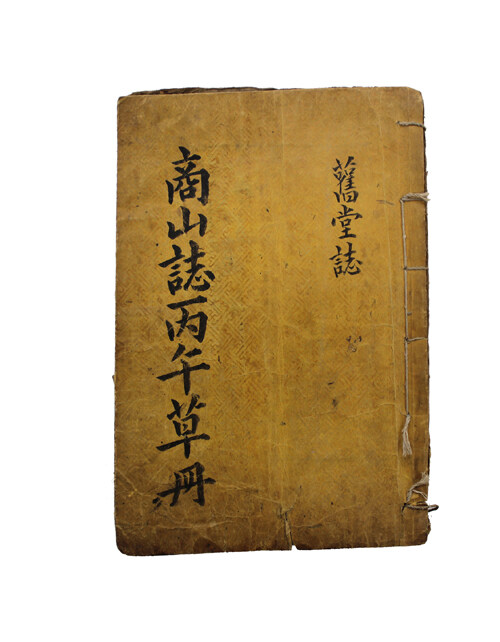 舊堂誌
商山誌丙午草冊